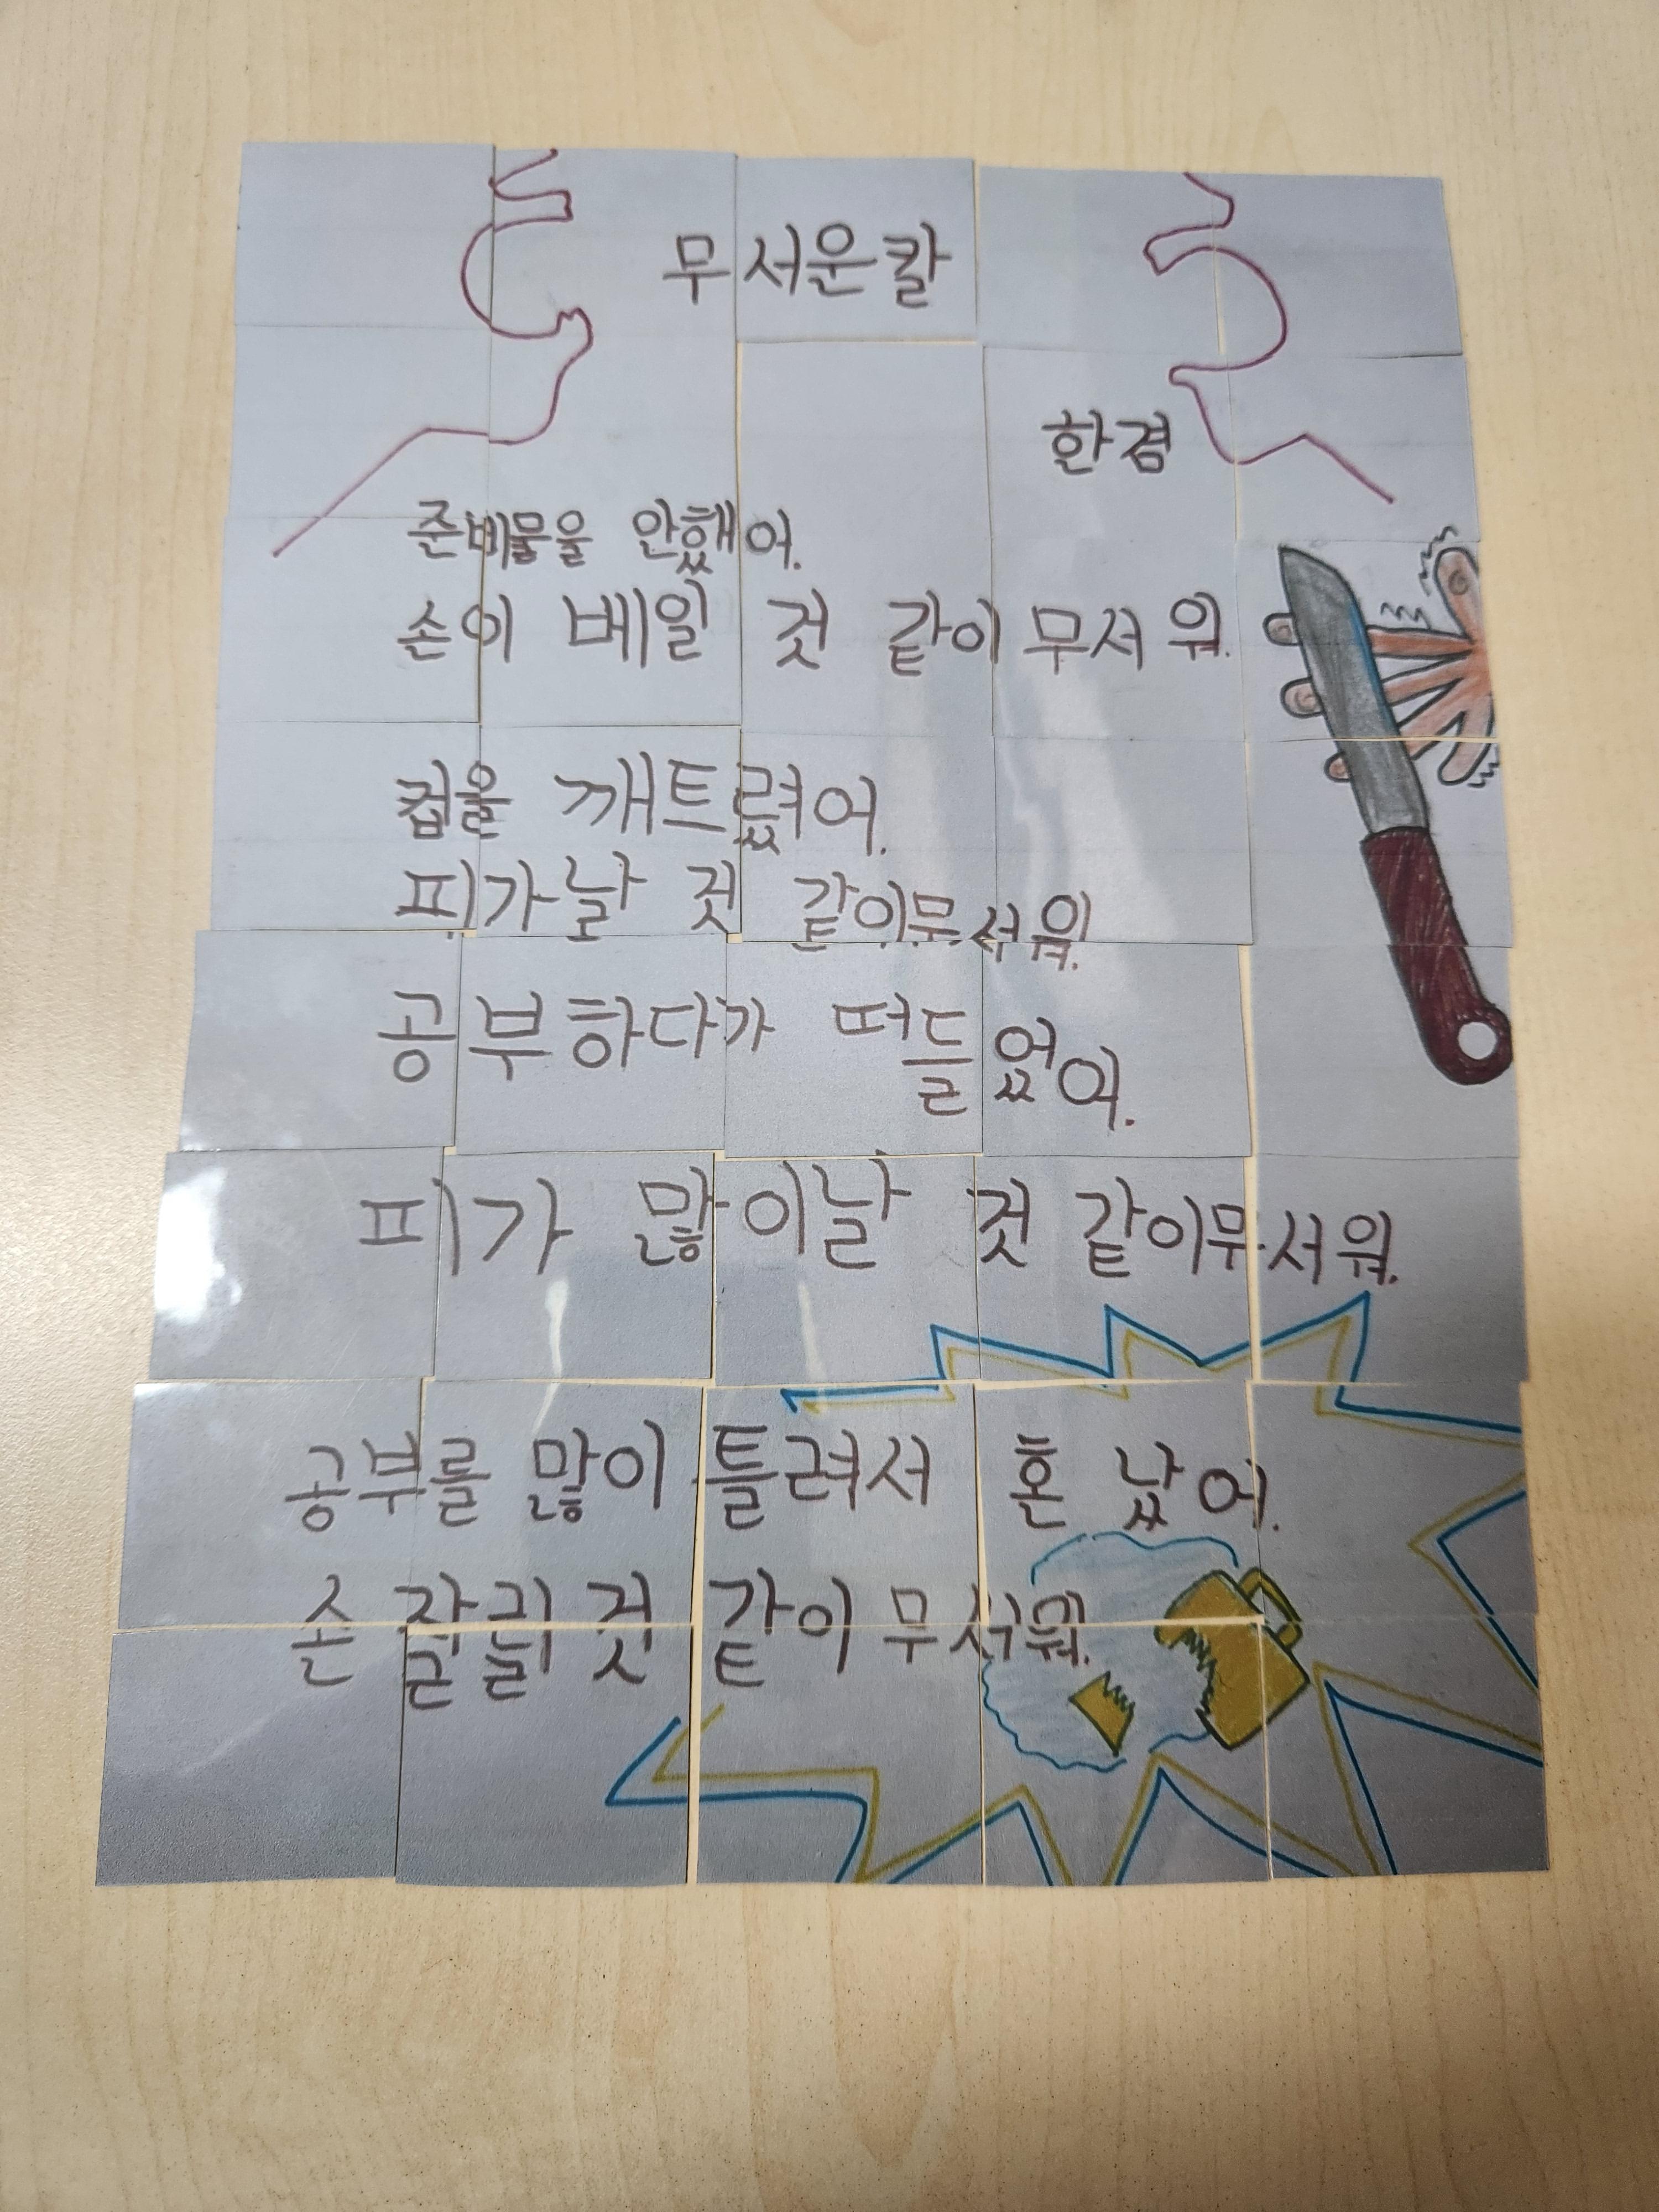 무서운칼
한겸
준비물을 안했어.
손이 베일 것 같이 무서워.
컵을 깨트렸어.
피가날 것 같이무서워.
공부하다가 떠들었어.
피가 많이날 것 같이무서워.
공부를 많이 틀려서 혼났어.
손 잘릴 것 같이 무서워.